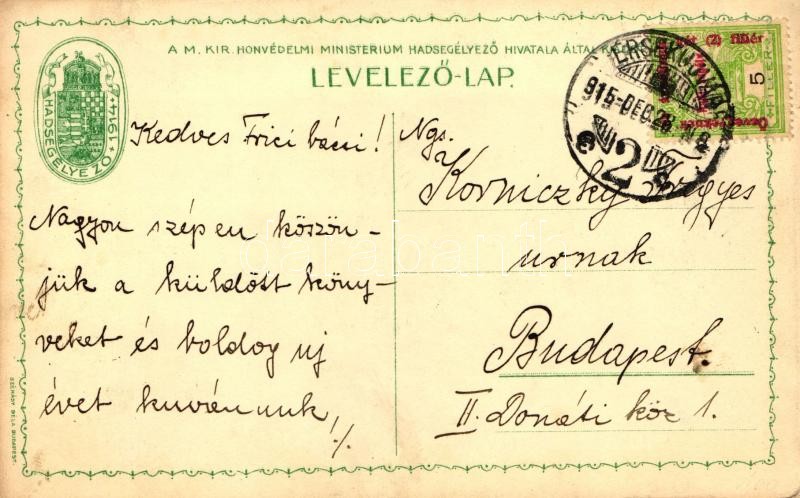 A M. KIR. HONVÉDELMI MINISTERIUM HADSEGÉLYEZŐ HIVATALA ÁLTAL
LEVELEZŐ-LAP.
1914
HADSEGÉLYEZŐ
(2) fillér
5
FILLÉR
915-DEC.
2
Kedves Frici bácsi!
Nagyon szépen köszön-
jük a küldött köny-
veket és boldog uj
évet kivánunk
Ngs.
Korniczky
urnak
Budapest.
II. Donáti köz 1.
darabanth